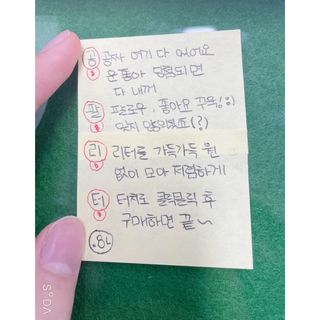 공 공짜 여기 다 있어요
운 좋아 당첨되면
다 내꺼
팔 팔로우, 좋아요 꾸욱!:)
잊지 않으셨죠(?)
리 리터를 가득가득 원
없이 모아 저렴하게
터 터치로 클릭클릭 후
구매하면 끝~
.8L